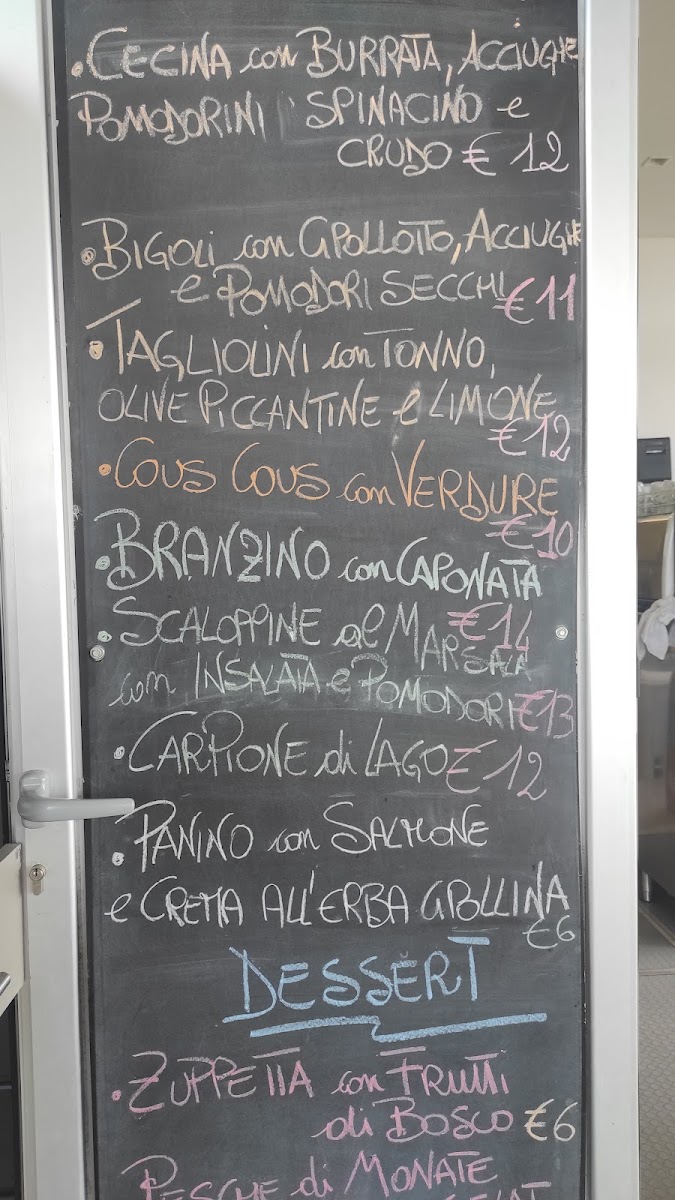 • CECINA con BURRATA, ACCIUGHE
POMODORINI SPINACINO e
CRUDO € 12
• BIGOLI con CIPOLLOTTO, ACCIUGHE
e POMODORI SECCHI €11
• TAGLIOLINI con TONNO,
OLIVE PICCANTINE e LIMONE
€12
• COUS COUS con VERDURE
€10
• BRANZINO con CAPONATA
€14
• SCALOPPINE al MARSALA
con INSALATA e POMODORI €13
• CARPIONE di LAGO € 12
• PANINO con SALMONE
e CREMA ALL'ERBA CIPOLLINA
€6
DESSERT
• ZUPPETTA con FRUTTI
di BOSCO €6
PESCHE di MONATE